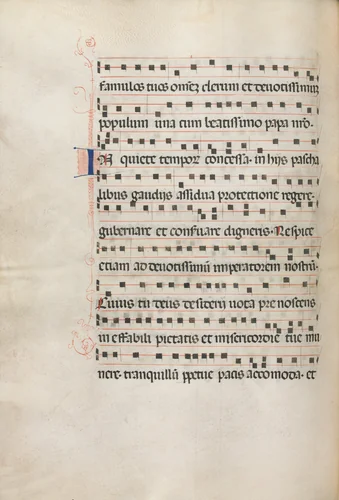 famulos tuos omnez clerum et deuotissimum
populum una cum beatissimo papa nro·
N quiete tempor concessa· in hijs pascha
libus gaudijs assidua protectione regere·
gubernare et conseruare digneris· Respice
etiam ad deuotissimum imperatorem nostrum·
Cuius tu deus desiderij uota prenoscens
ineffabili pietatis et misericordie tue mu
nere· tranquillum ppetue pacis accomoda· et